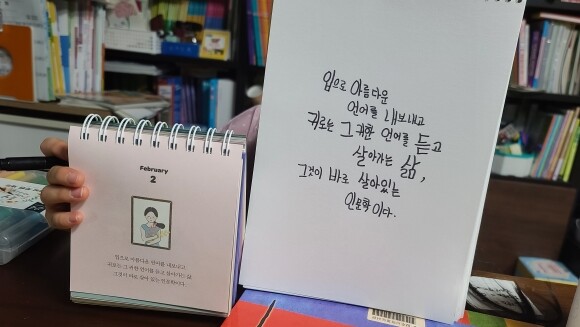 February
2
입으로 아름다운 언어를 내보내고
귀로는 그 귀한 언어를 듣고 살아가는 삶,
그것이 바로 살아 있는 인문학이다.
입으로 아름다운
언어를 내보내고
귀로는 그 귀한 언어를 듣고
살아가는 삶,
그것이 바로 살아있는
인문학이다.